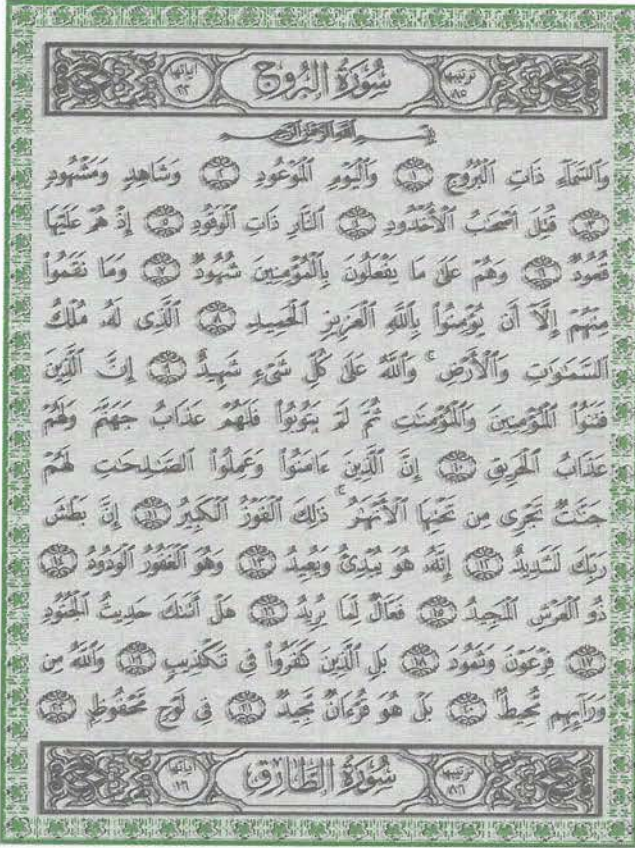 ترتيبها ٨٥ سُورَةُ الْبُرُوجِ آياتها ٢٢
بِسْمِ اللَّهِ الرَّحْمَٰنِ الرَّحِيمِ
وَٱلسَّمَآءِ ذَاتِ ٱلْبُرُوجِ ١ وَٱلْيَوْمِ ٱلْمَوْعُودِ ٢ وَشَاهِدٍ وَمَشْهُودٍ
٣ قُتِلَ أَصْحَٰبُ ٱلْأُخْدُودِ ٤ ٱلنَّارِ ذَاتِ ٱلْوَقُودِ ٥ إِذْ هُمْ عَلَيْهَا
قُعُودٌ ٦ وَهُمْ عَلَىٰ مَا يَفْعَلُونَ بِٱلْمُؤْمِنِينَ شُهُودٌ ٧ وَمَا نَقَمُوا۟
مِنْهُمْ إِلَّآ أَن يُؤْمِنُوا۟ بِٱللَّهِ ٱلْعَزِيزِ ٱلْحَمِيدِ ٨ ٱلَّذِى لَهُۥ مُلْكُ
ٱلسَّمَٰوَٰتِ وَٱلْأَرْضِ ۚ وَٱللَّهُ عَلَىٰ كُلِّ شَىْءٍ شَهِيدٌ ٩ إِنَّ ٱلَّذِينَ
فَتَنُوا۟ ٱلْمُؤْمِنِينَ وَٱلْمُؤْمِنَٰتِ ثُمَّ لَمْ يَتُوبُوا۟ فَلَهُمْ عَذَابُ جَهَنَّمَ وَلَهُمْ
عَذَابُ ٱلْحَرِيقِ ١٠ إِنَّ ٱلَّذِينَ ءَامَنُوا۟ وَعَمِلُوا۟ ٱلصَّٰلِحَٰتِ لَهُمْ
جَنَّٰتٌ تَجْرِى مِن تَحْتِهَا ٱلْأَنْهَٰرُ ۚ ذَٰلِكَ ٱلْفَوْزُ ٱلْكَبِيرُ ١١ إِنَّ بَطْشَ
رَبِّكَ لَشَدِيدٌ ١٢ إِنَّهُۥ هُوَ يُبْدِئُ وَيُعِيدُ ١٣ وَهُوَ ٱلْغَفُورُ ٱلْوَدُودُ ١٤
ذُو ٱلْعَرْشِ ٱلْمَجِيدُ ١٥ فَعَّالٌ لِّمَا يُرِيدُ ١٦ هَلْ أَتَىٰكَ حَدِيثُ ٱلْجُنُودِ
١٧ فِرْعَوْنَ وَثَمُودَ ١٨ بَلِ ٱلَّذِينَ كَفَرُوا۟ فِى تَكْذِيبٍ ١٩ وَٱللَّهُ مِن
وَرَآئِهِم مُّحِيطٌۢ ٢٠ بَلْ هُوَ قُرْءَانٌ مَّجِيدٌ ٢١ فِى لَوْحٍ مَّحْفُوظٍۭ ٢٢
ترتيبها ٨٦ سُورَةُ الطَّارِقِ آياتها ١٦